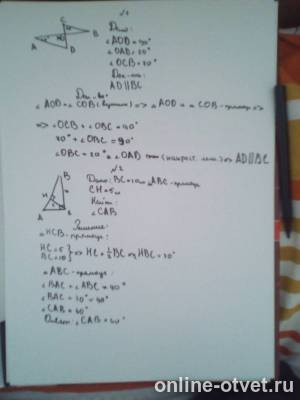 №1
C
B
A
D
Дано:
∠AOD = 90°
∠OAD = 20°
∠OCB = 70°
Док-ть:
AD||BC
Док-во:
∠AOD = ∠COB (вертик.) => ∠AOD = ∠COB - прямые =>
=> ∠OCB + ∠OBC = 90°
70° + ∠OBC = 90°
∠OBC = 20° = ∠OAD => AD||BC
№2
B
H
A
C
Дано: BC = 10 ∠ABC - прямоуг.
CH = 5
Найти:
∠CAB
Решение:
∠HCB - прямоуг.
HC = 5
BC = 10 => HC = ½BC => HBC = 30°
∠ABC - прямоуг.:
∠BAC + ∠ABC = 90°
∠BAC + 30° = 90°
∠CAB = 60°
Ответ: ∠CAB = 60°
online-otvet.ru